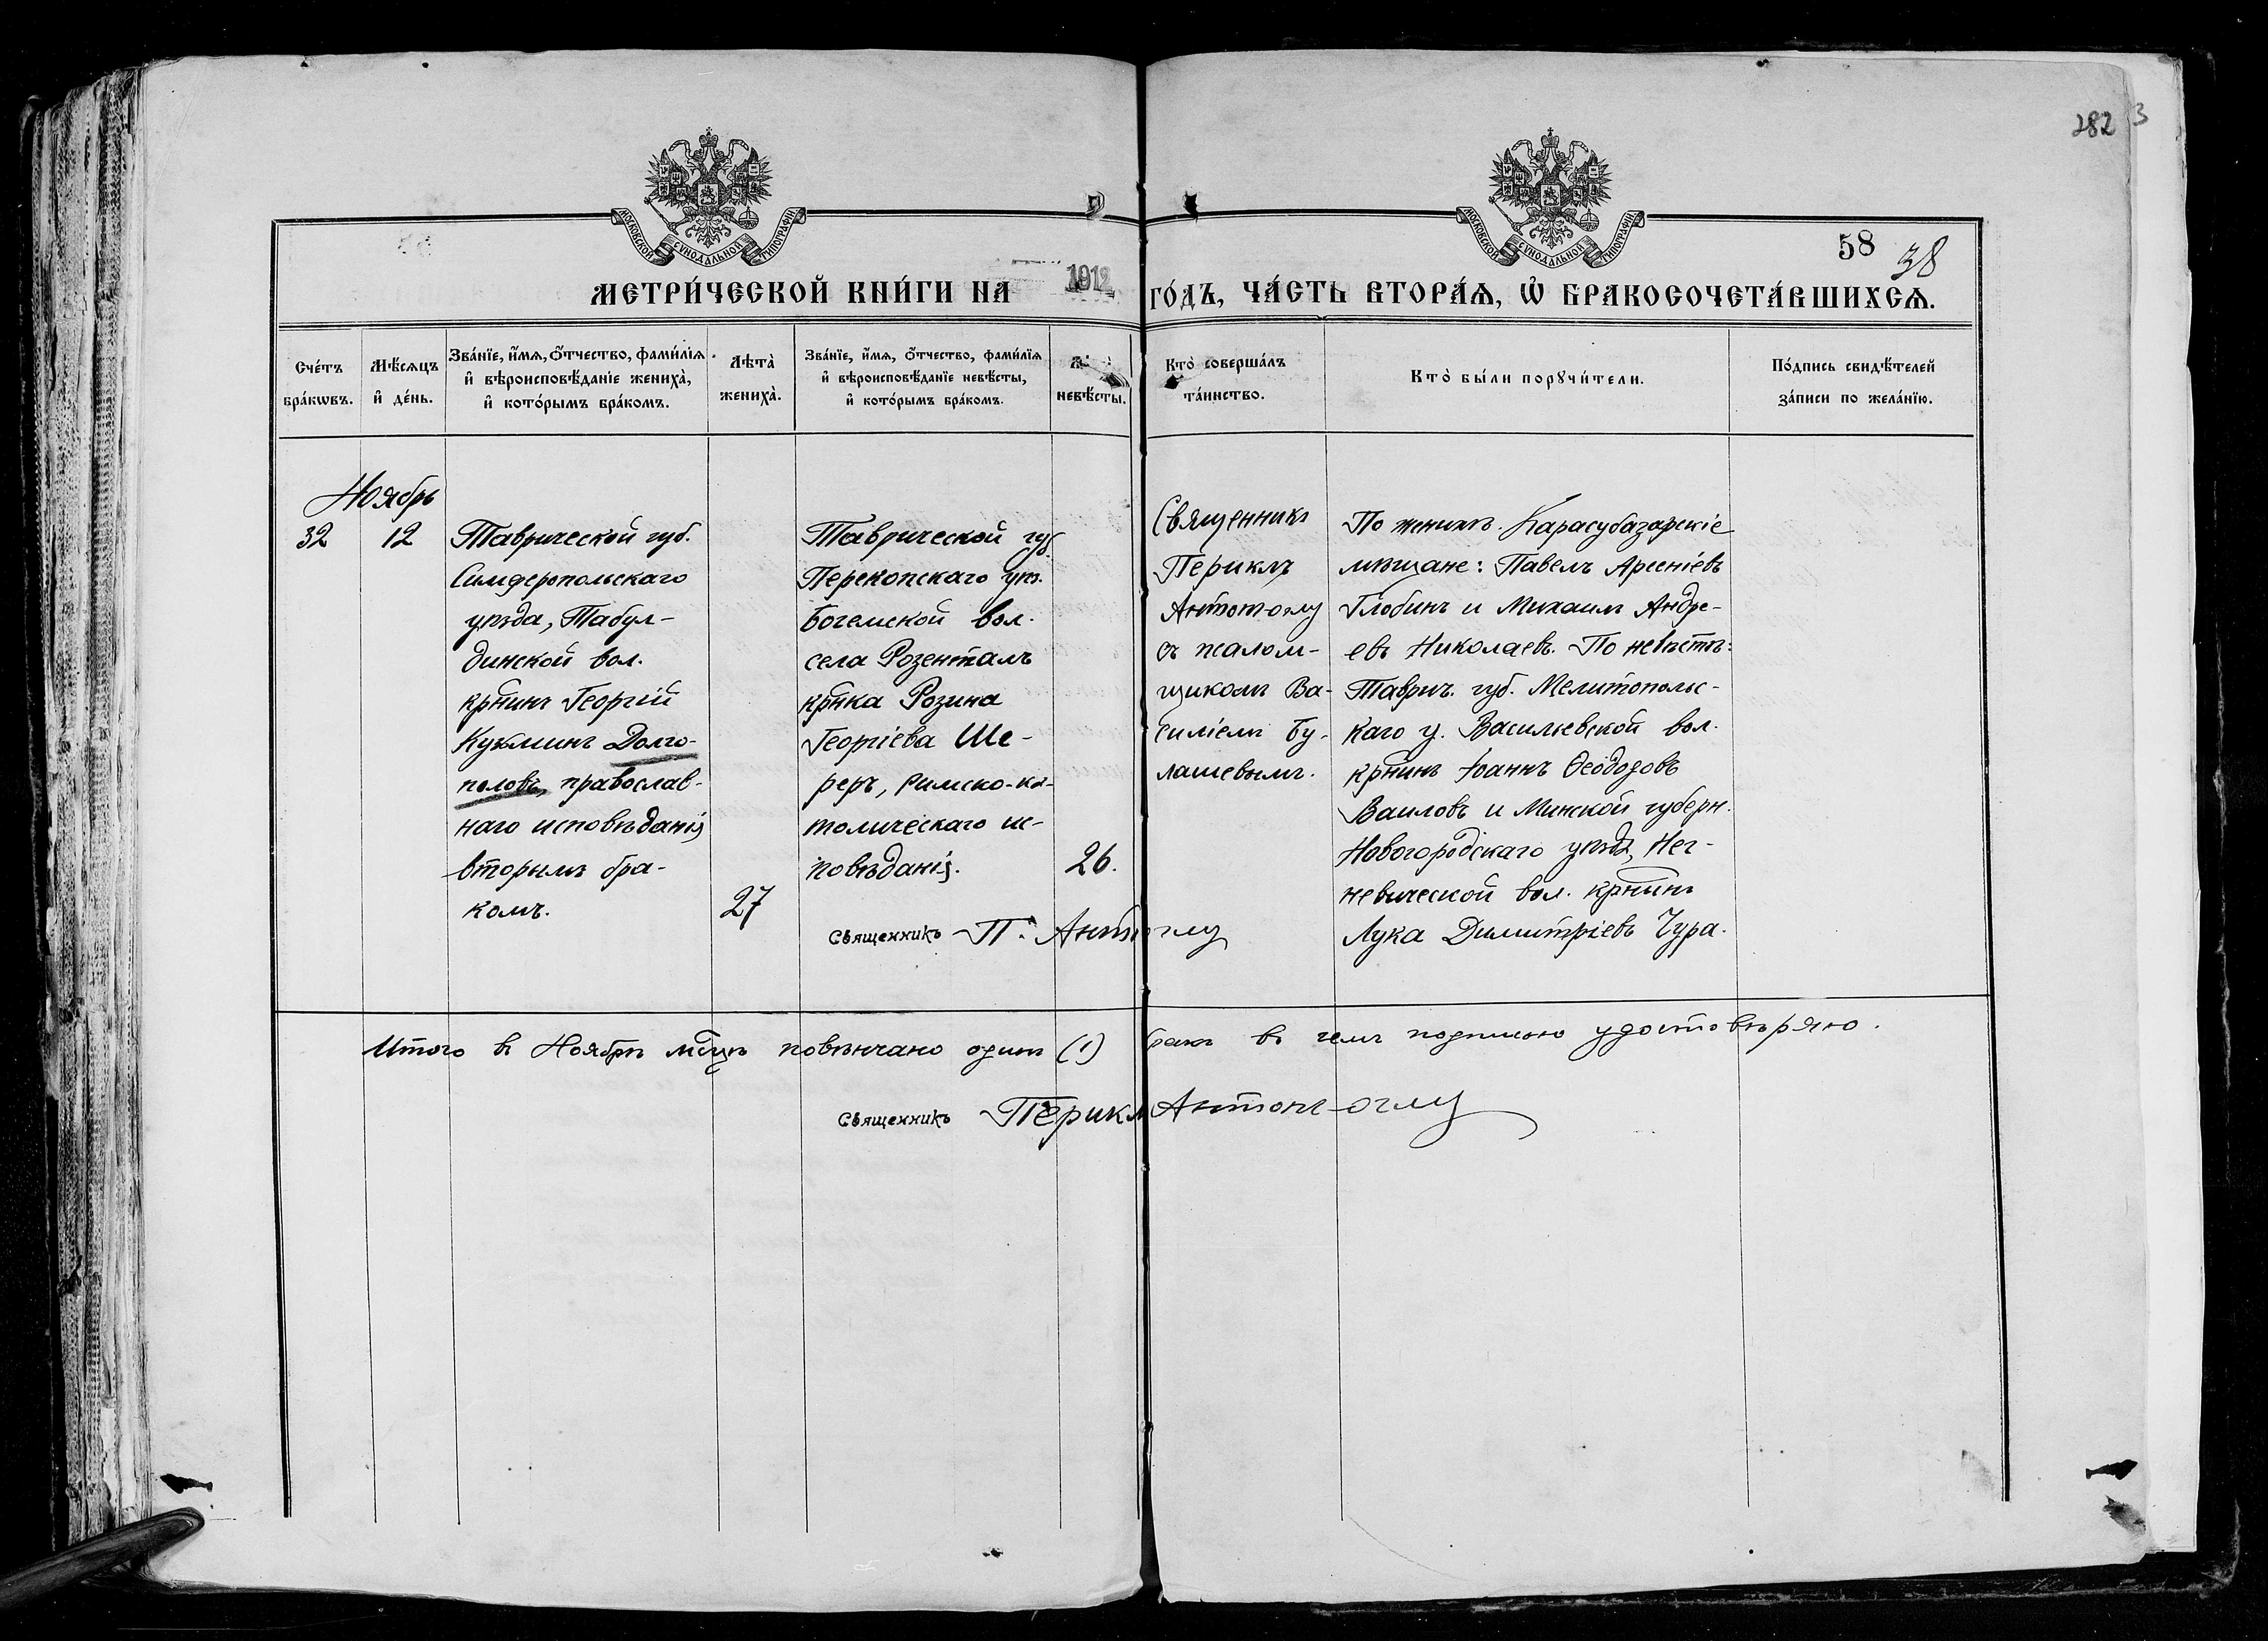 282 3
МОСКОВСКОЙ СѴНОДАЛЬНОЙ ТИПОГРАФІИ
МОСКОВСКОЙ СѴНОДАЛЬНОЙ ТИПОГРАФІИ
58 38
МЕТРИ́ЧЕСКОЙ КНИ́ГИ НА 1912 ГО́ДЪ, ЧА́СТЬ ВТОРА́Ѧ, Ѡ҆ БРАКОСОЧЕТА́ВШИХСѦ.
Сче́тъ
бра́кѡвъ.
Мѣ́сѧцъ
и҆ де́нь.
Зва́нїе, и҆́мѧ, ѻ҆́тчество, фами́лїѧ
и҆ вѣроисповѣ́данїе жениха̀,
и҆ кото́рымъ бра́комъ.
Лѣта̀
жениха̀.
Зва́нїе, и҆́мѧ, ѻ҆́тчество, фами́лїѧ
и҆ вѣроисповѣ́данїе невѣ́сты,
и҆ кото́рымъ бра́комъ.
невѣ́сты.
Кто̀ соверша́лъ
та́инство.
Кто̀ бы́ли порꙋчи́тели.
По́дпись свидѣ́телей
за́писи по жела́нїю.
Ноябрь
32 12
Таврической губ.
Симферопольскаго
уѣзда, Табул-
динской вол.
крнинъ Георгій
Кузьминъ Долго-
половъ, православ-
наго исповѣданія
вторымъ бра-
комъ.
27
Таврической губ.
Перекопскаго уѣз.
Богемской вол.
села Розенталь
крнка Розина
Георгіева Ше-
реръ, римско-ка-
толическаго ис-
повѣданія.
26.
Священникъ П. Антоноглу
Священникъ
Периклъ
Антон-оглу
съ псалом-
щикомъ Ва-
силіемъ Бу-
лашевымъ.
По женихѣ: Карасубазарскіе
мѣщане: Павелъ Арсеніевъ
Глобинъ и Михаилъ Андре-
евъ Николаевъ. По невѣстѣ:
Таврич. губ. Мелитопольс-
каго у. Васильевской вол.
крнинъ Іоаннъ Ѳеодоровъ
Ваиловъ и Минской губерн.
Новогородскаго уѣзда, Нег-
невической вол. крнинъ
Лука Димитріевъ Чура.
Итого въ Ноябрѣ мсцѣ повѣнчано одинъ (1) бракъ въ чемъ подписью удостовѣряю.
Священникъ Периклъ Антонъ-оглу